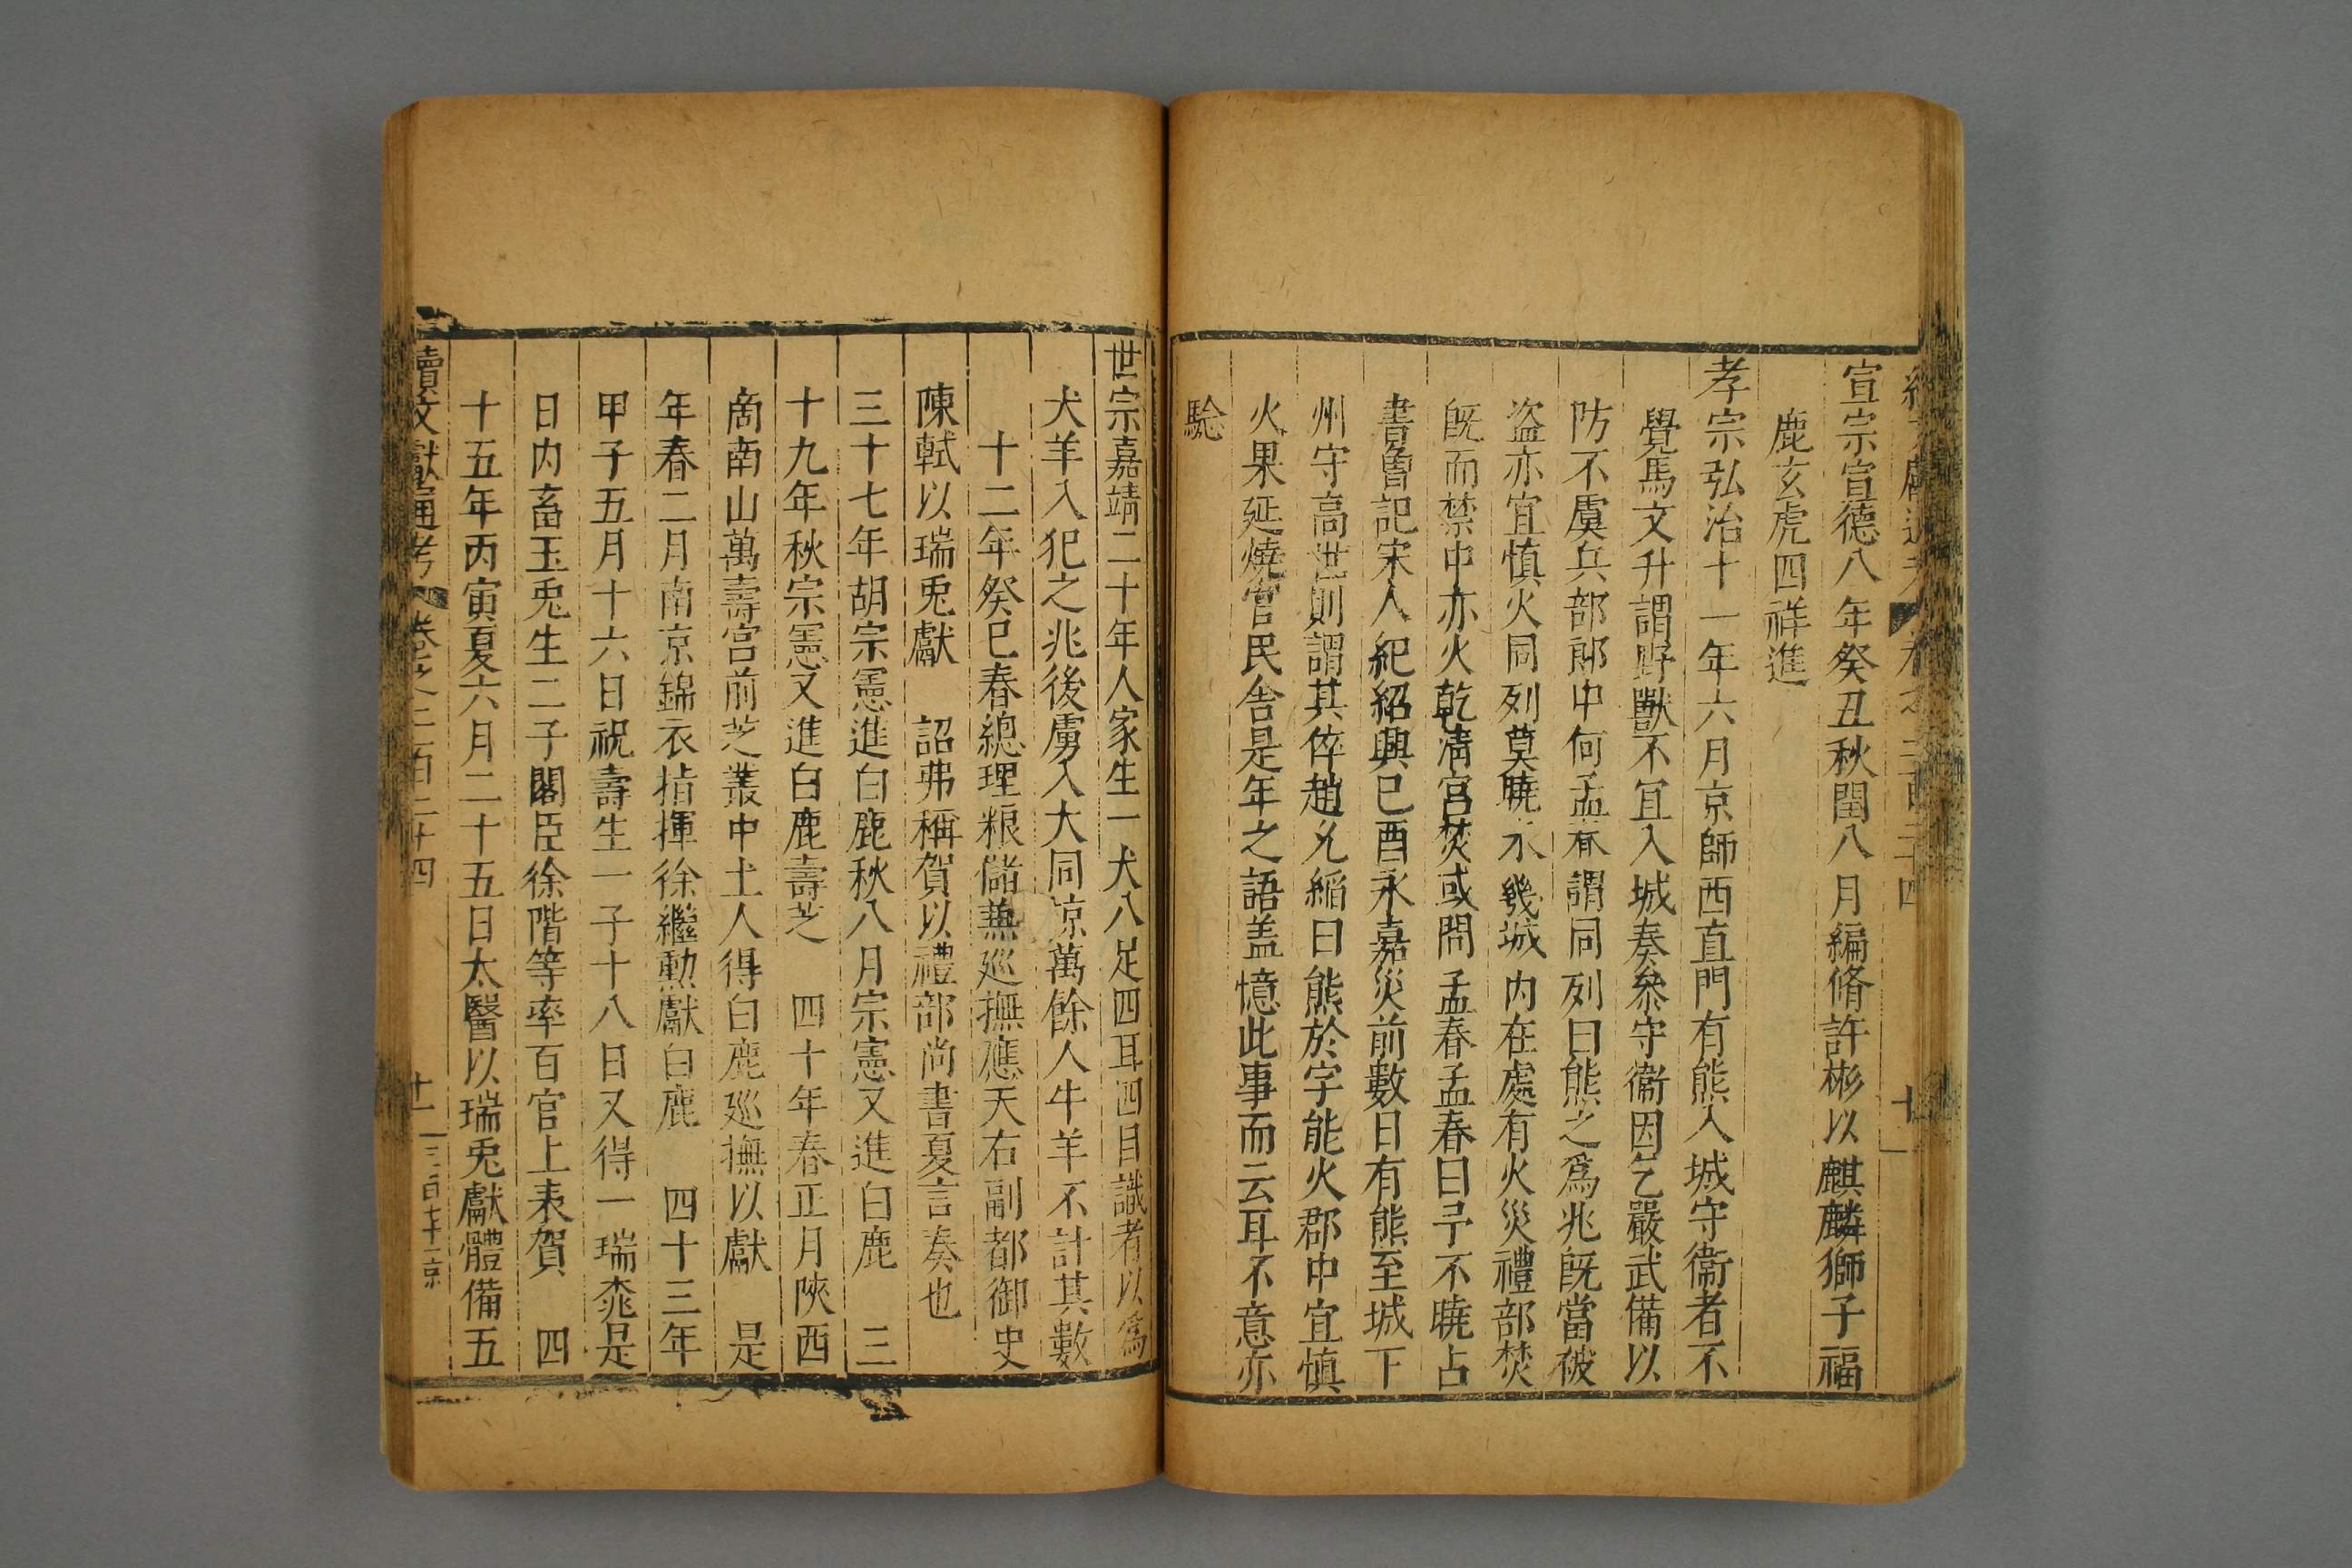 續文獻通考 卷之二百二十四 十
宣宗宣德八年癸丑秋閏八月編脩許彬以麒麟獅子福
鹿玄虎四祥進
孝宗弘治十一年六月京師西直門有熊入城守衞者不
覺馬文升謂野獸不宜入城奏叅守衞因乞嚴武備以
防不虞兵部郎中何孟春謂同列曰熊之爲兆旣當備
盜亦宜慎火同列莫曉未幾城內在處有火災禮部焚
旣而禁中亦火乾清宮焚或問孟春孟春曰予不曉占
書曾記宋人紀紹興己酉永嘉災前數日有熊至城下
州守高世則謂其倅趙允縚曰熊於字能火郡中宜慎
火果延燒官民舍是年之語盖憶此事而云耳不意亦
驗
世宗嘉靖二十年人家生一犬八足四耳四目識者以爲
犬羊入犯之兆後虜入大同凉萬餘人牛羊不計其數
十二年癸巳春總理粮儲兼廵撫應天右副都御史
陳軾以瑞兎獻 詔弗稱賀以禮部尚書夏言奏也
三十七年胡宗憲進白鹿秋八月宗憲又進白鹿 三
十九年秋宗憲又進白鹿壽芝 四十年春正月陝西
商南山萬壽宮前芝叢中土人得白鹿廵撫以獻 是
年春二月南京錦衣指揮徐繼勲獻白鹿 四十三年
甲子五月十六日祝壽生一子十八日又得一瑞桃是
日內畜玉兎生二子閣臣徐階等率百官上表賀 四
十五年丙寅夏六月二十五日太醫以瑞兎獻體備五
續文獻通考 卷之二百二十四 十一